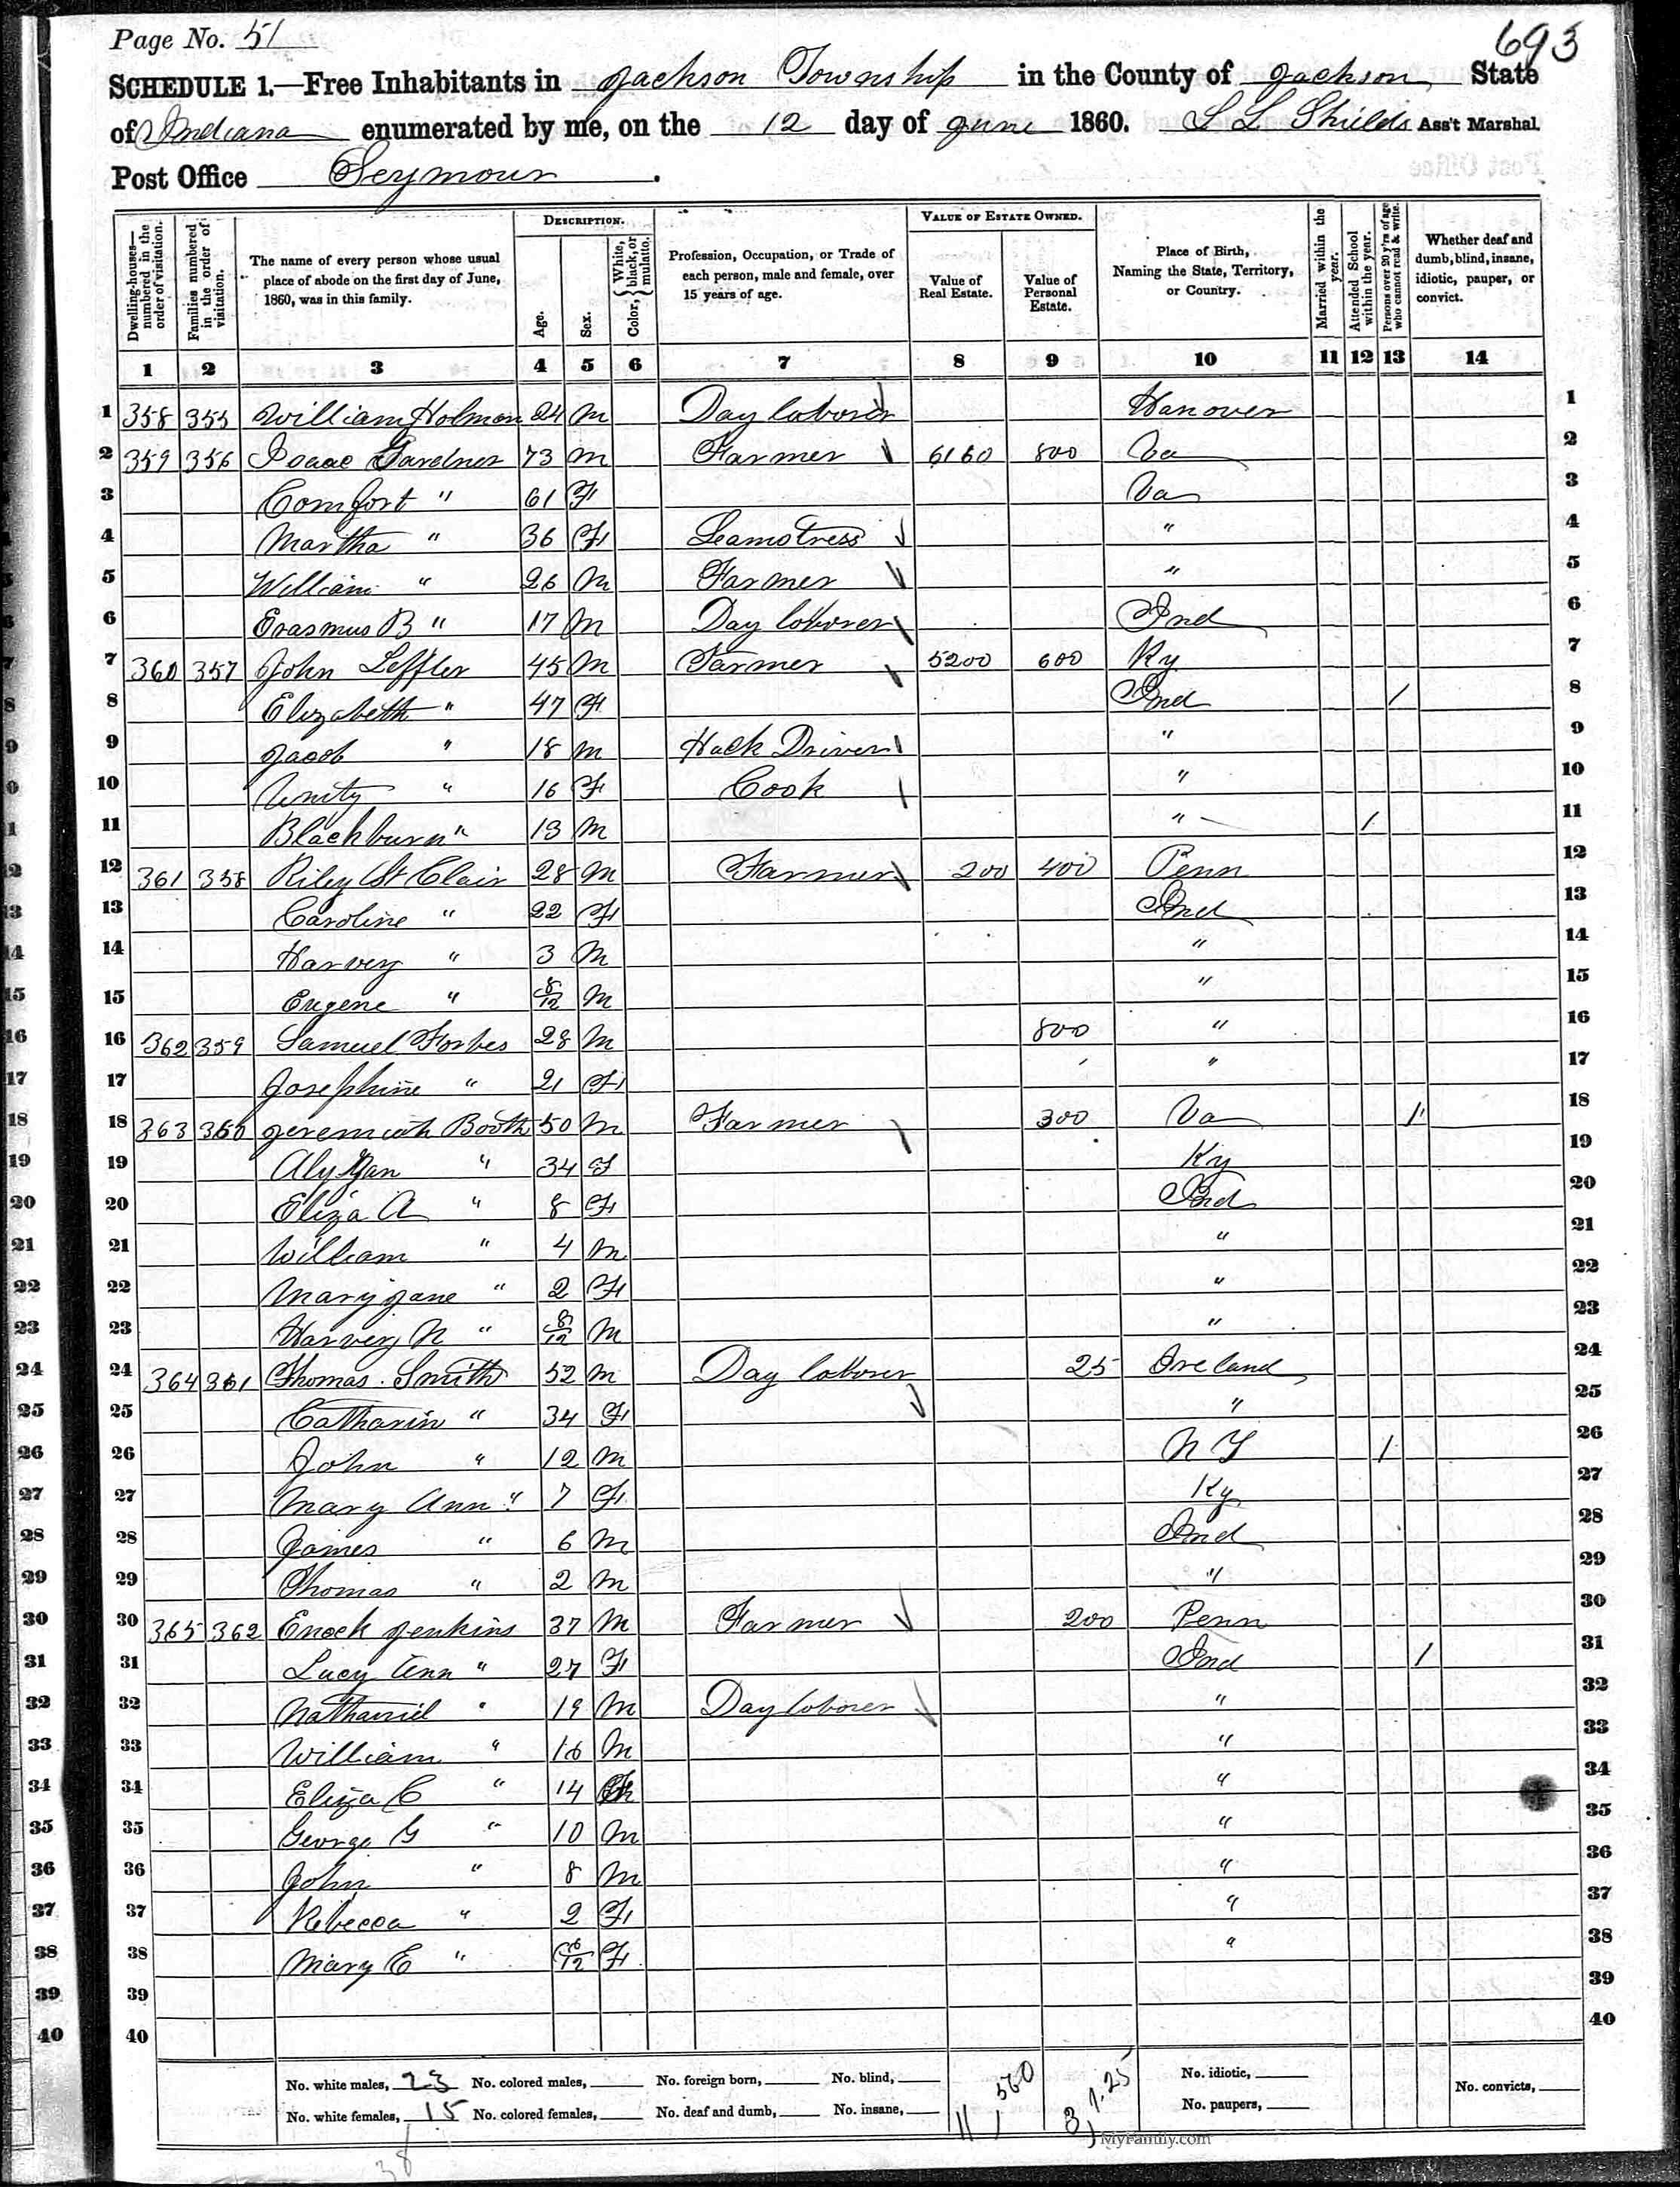 Page No. 51
693
SCHEDULE 1.—Free Inhabitants in Jackson Township in the County of Jackson State
of Indiana enumerated by me, on the 12 day of June 1860. S L Shields Ass't Marshal.
Post Office Seymour.
Dwelling-houses—numbered in the order of visitation.
Families numbered in the order of visitation.
The name of every person whose usual place of abode on the first day of June, 1860, was in this family.
DESCRIPTION.
Age.
Sex.
Color, {White, black, or mulatto.
Profession, Occupation, or Trade of each person, male and female, over 15 years of age.
VALUE OF ESTATE OWNED.
Value of Real Estate.
Value of Personal Estate.
Place of Birth, Naming the State, Territory, or Country.
Married within the year.
Attended School within the year.
Persons over 20 y'rs of age who cannot read & write.
Whether deaf and dumb, blind, insane, idiotic, pauper, or convict.
1 2 3 4 5 6 7 8 9 10 11 12 13 14
1 358 355 William Holman 24 M Day laborer Hanover 1
2 359 356 Isaac Gardner 73 M Farmer 6160 800 Va 2
3 Comfort " 61 F Va 3
4 Martha " 36 F Seamstress " 4
5 William " 26 M Farmer " 5
6 Erasmus B " 17 M Day laborer Ind 6
7 360 357 John Leffler 45 M Farmer 5200 600 Ky 7
8 Elizabeth " 47 F Ind / 8
9 Jacob " 18 M Hack Driver " 9
10 Unity " 16 F Cook " 10
11 Blackburn " 13 M " / 11
12 361 358 Riley St Clair 28 M Farmer 200 400 Penn 12
13 Caroline " 22 F Ind 13
14 Harvey " 3 M " 14
15 Eugene " 8/12 M " 15
16 362 359 Samuel Forbes 28 M 800 " 16
17 Josephine " 21 F " 17
18 363 360 Jeremiah Booth 50 M Farmer 300 Va / 18
19 Aly " 34 F Ky 19
20 Eliza A " 8 F Ind 20
21 William " 4 M " 21
22 Mary Jane " 2 F " 22
23 Harvey N " 8/12 M " 23
24 364 361 Thomas Smith 52 M Day laborer 25 Ireland 24
25 Catharin " 34 F " 25
26 John " 12 M N Y / 26
27 Mary Ann " 7 F Ky 27
28 James " 6 M Ind 28
29 Thomas " 2 M " 29
30 365 362 Enoch Jenkins 37 M Farmer 200 Penn 30
31 Lucy Ann " 27 F Ind / 31
32 Nathaniel " 19 M Day laborer " 32
33 William " 16 M " 33
34 Eliza C " 14 F " 34
35 George G " 10 M " 35
36 John " 8 M " 36
37 Rebecca " 2 F " 37
38 Mary E " /12 F " 38
39 39
40 40
No. white males, 23 No. colored males, No. foreign born, No. blind, 11,560 3,125 No. idiotic, No. convicts,
No. white females, 15 No. colored females, No. deaf and dumb, No. insane, No. paupers,
38
MyFamily.com